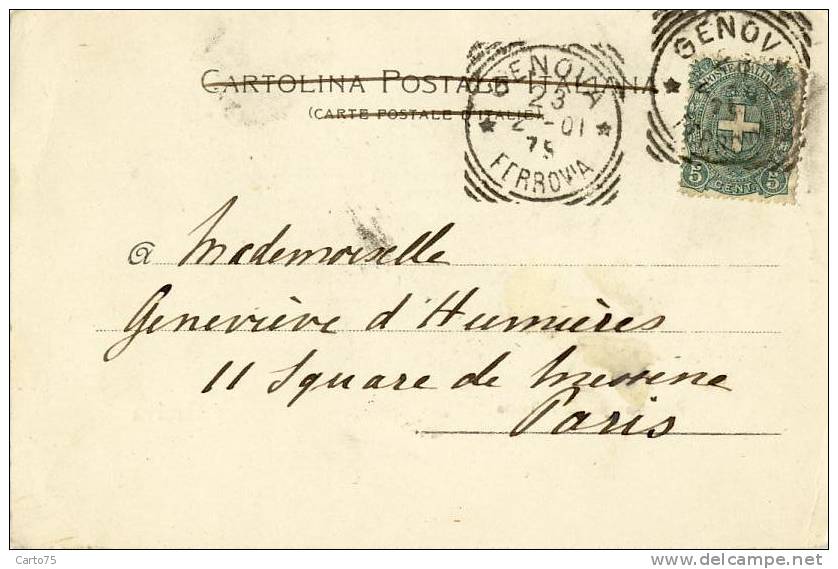 CARTOLINA POSTALE ITALIANA
(CARTE POSTALE D'ITALIE)
GENOVA
23
2-01
7S
FERROVIA
GENOV
POSTE ITALIANE
5 CENT. 5
a Mademoiselle
Geneviève d'Humières
11 Square de Messine
Paris
Carto75
http://www.delcampe.net